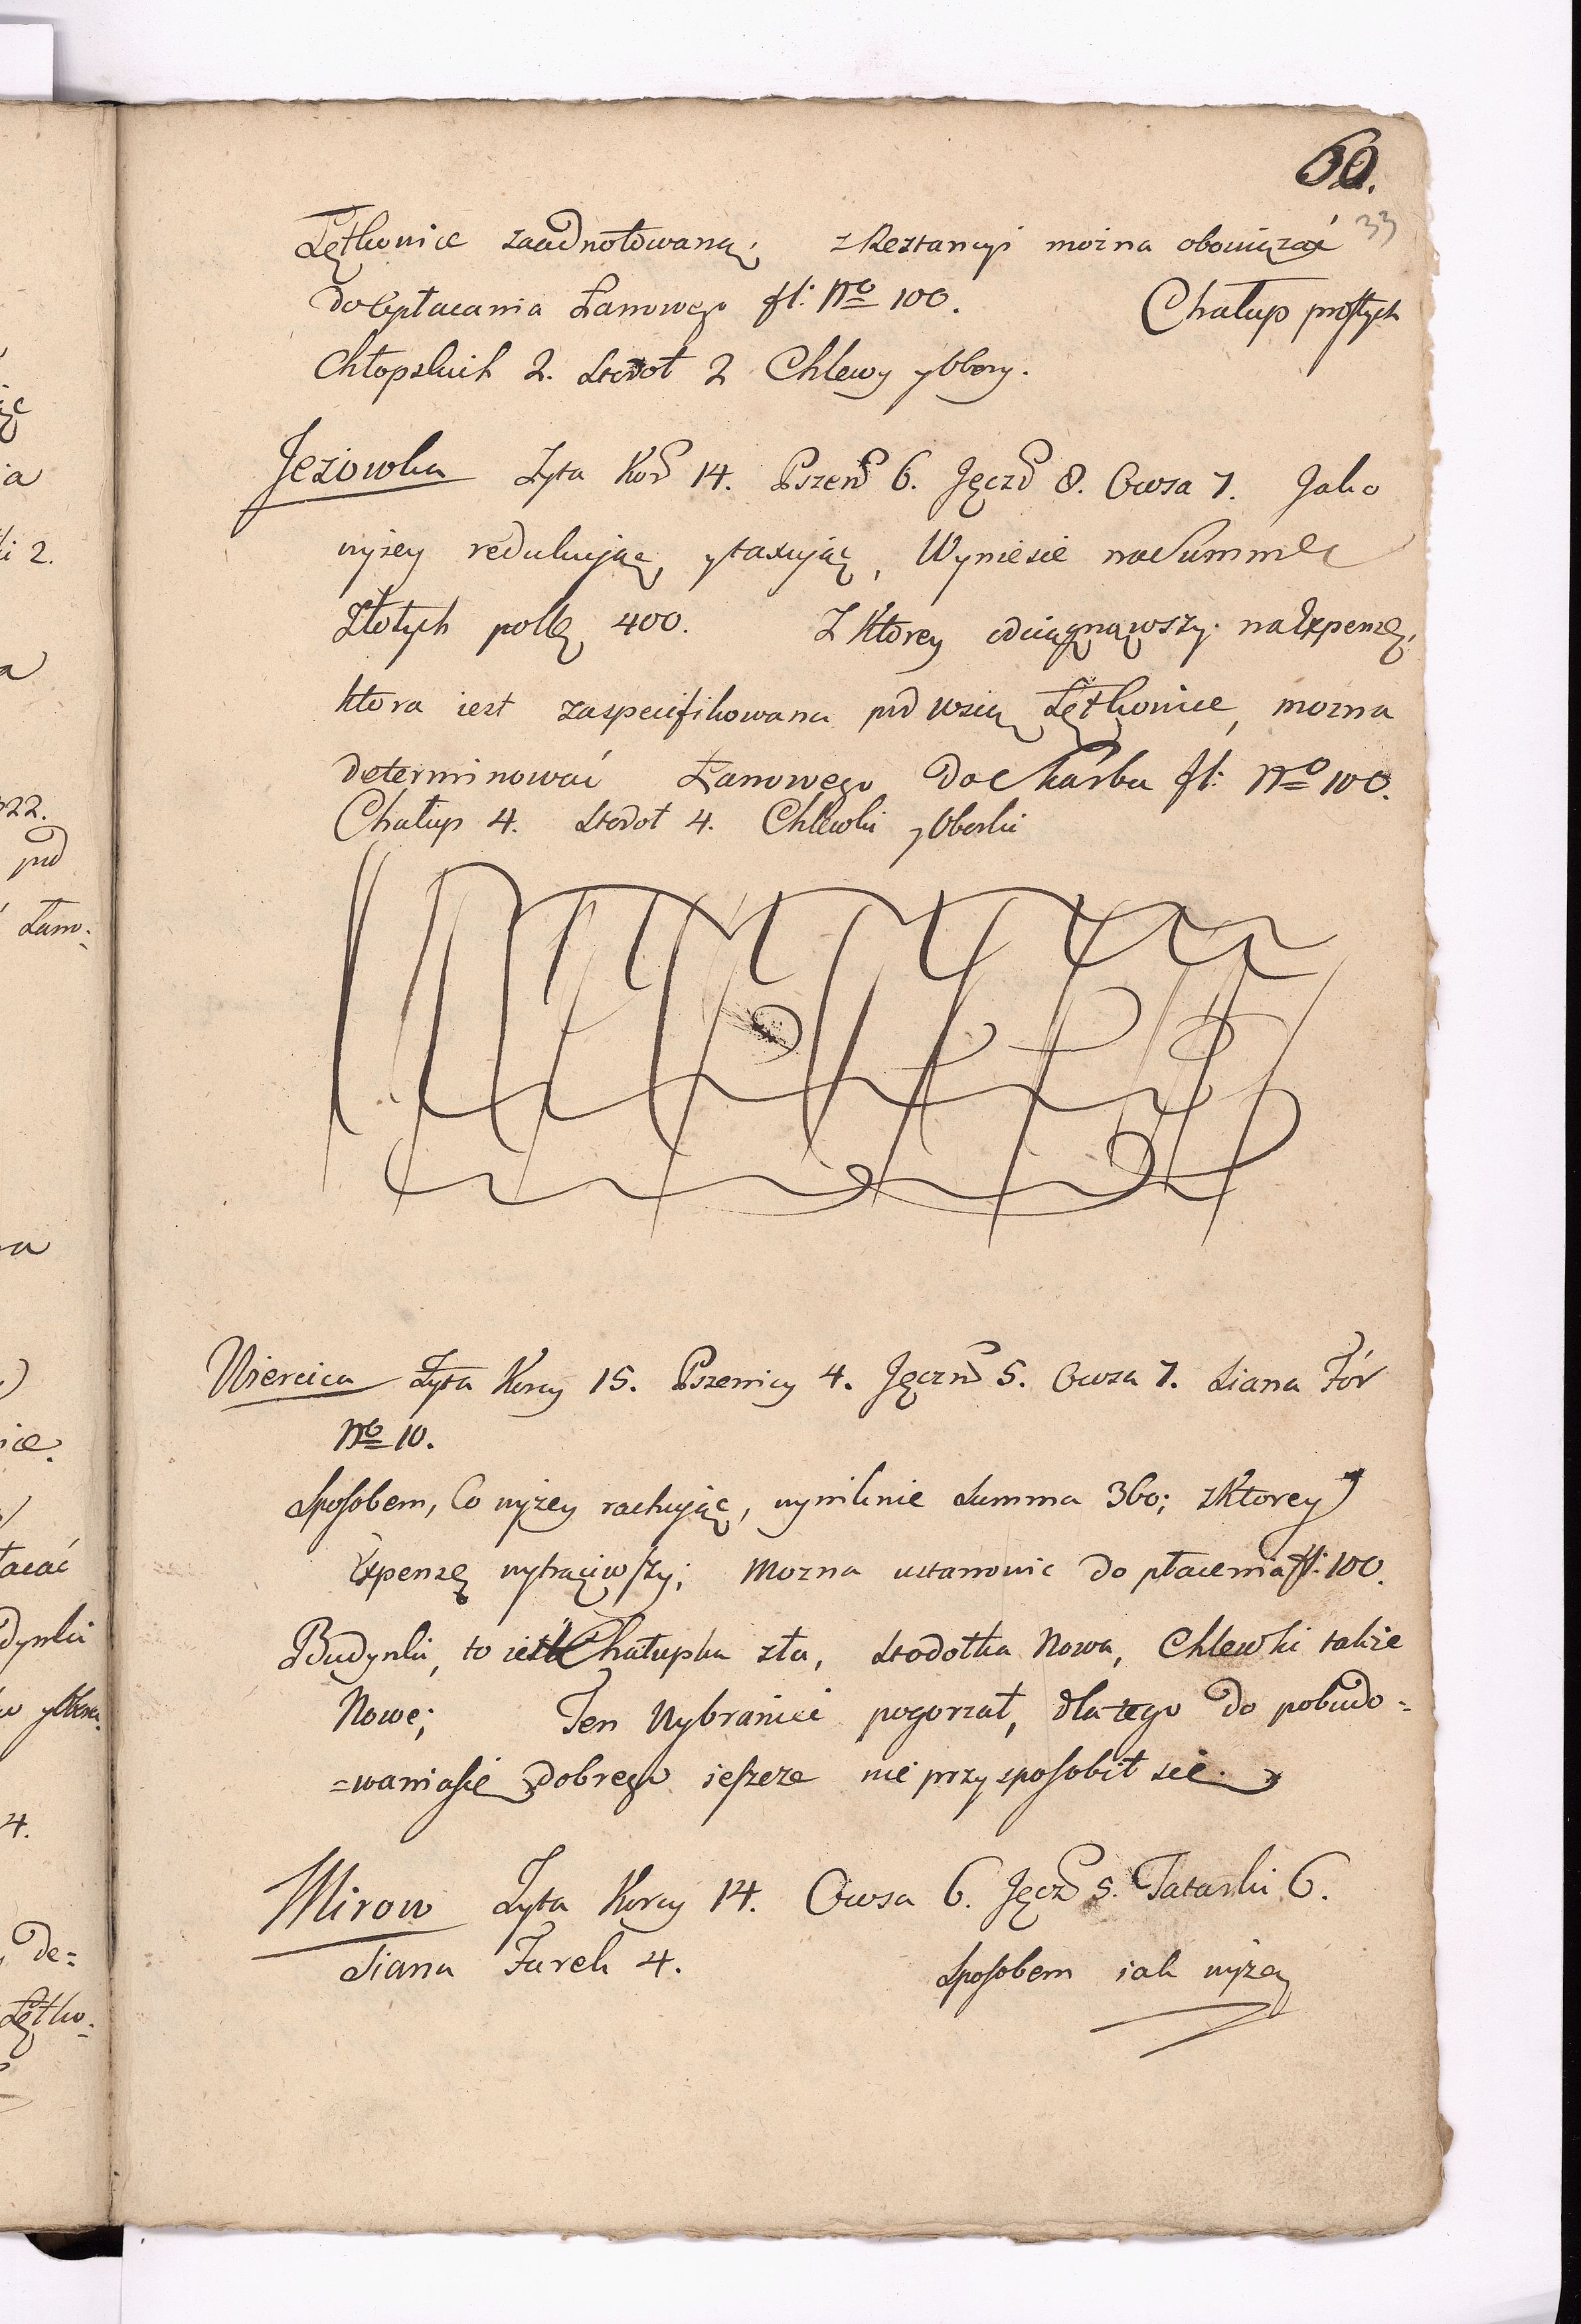 60.
33
Łętkowice zaadnotowaną; z Restancyi mozna obowiązać
do Opłacania Łanowego fl: No 100. Chałup prostych
Chłopskich 2. Stodoł 2 Chlewy y Obory.
Jezowka Zyta Kor 14. Pszen 6. Jęcz 8. Owsa 7. Jako
wyzey redukując, y taxując, Wyniesie na Summę
Złotych polls 400. Z Ktorey odciągnąwszy na Expensę,
ktora iest zaspecifikowana pod wsią Łętkowice, mozna
determinować Łanowego do Skarbu fl: No 100.
Chałup 4. Stodoł 4. Chlewki y Oborki
Wiercica Zyta Korcy 15. Pszenicy 4. Jęczm 5. Owsa 7. Siana Fór
No 10.
Sposobem, Co wyzey rachując, wyniknie Summa 360; z Ktorey
Expensę wytrąciwszy; Mozna ustanowic do płacenia fl: 100.
Budynki, to iest Chałupka zła, Stodołka Nowa, Chlewki takze
Nowe; Ten Wybraniec pogorzał, dla tego do pobudo=
=wania się dobrego ieszcze nie przysposobił się.
Mirow Zyta Korcy 14. Owsa 6. Jęcz 5. Tatarki 6.
Siana Furek 4. Sposobem iak wyzey